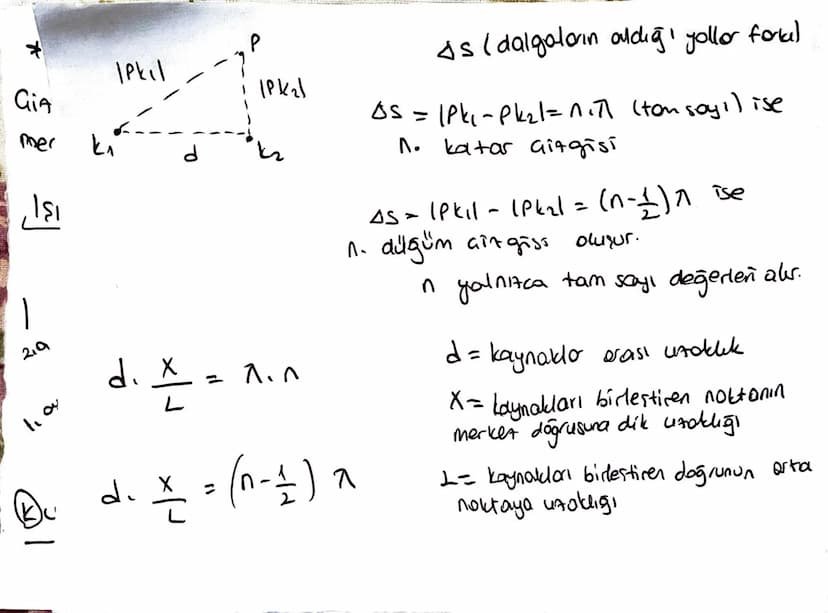 *
P
|Pk₁|
|Pk₂|
k₁
d
k₂
Δs (dalgaların aldığı yollar farkı)
Δs = |Pk₁ - Pk₂| = n.λ (tam sayı) ise
n. katar çizgisi
Δs = |Pk₁| - |Pk₂| = (n-1/2)λ ise
n. düğüm çizgisi oluşur.
n yalnızca tam sayı değerleri alır.
d. x/L = λ.n
d. x/L = (n-1/2) λ
d = kaynakla arası uzaklık
x = kaynakları birleştiren noktanın
merkez doğrusuna dik uzaklığı
L = kaynakları birleştiren doğrunun orta
noktaya uzaklığı